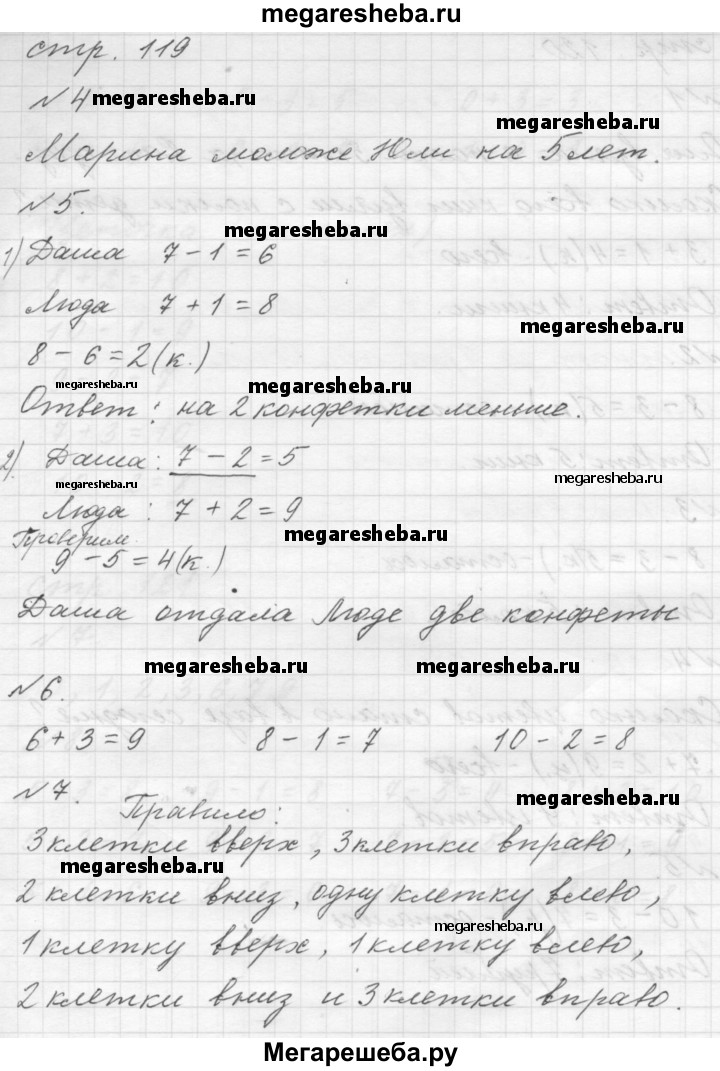 megaresheba.ru
стр. 119
№4 megaresheba.ru
megaresheba.ru
Марина моложе Юли на 5 лет.
№5.
megaresheba.ru
1) Даша 7 - 1 = 6
Люда 7 + 1 = 8
megaresheba.ru
8 - 6 = 2 (к.)
megaresheba.ru megaresheba.ru
Ответ: на 2 конфетки меньше.
2). Даша: 7 - 2 = 5
megaresheba.ru megaresheba.ru
Люда: 7 + 2 = 9
Проверим megaresheba.ru
9 - 5 = 4 (к.)
Даша отдала Люде две конфеты
megaresheba.ru megaresheba.ru
№6.
6 + 3 = 9 8 - 1 = 7 10 - 2 = 8
№7. megaresheba.ru
Правило:
3 клетки вверх, 3 клетки вправо,
megaresheba.ru
2 клетки вниз, одну клетку влево,
megaresheba.ru
1 клетку вверх, 1 клетку влево,
2 клетки вниз и 3 клетки вправо.
Мегарешеба.ру